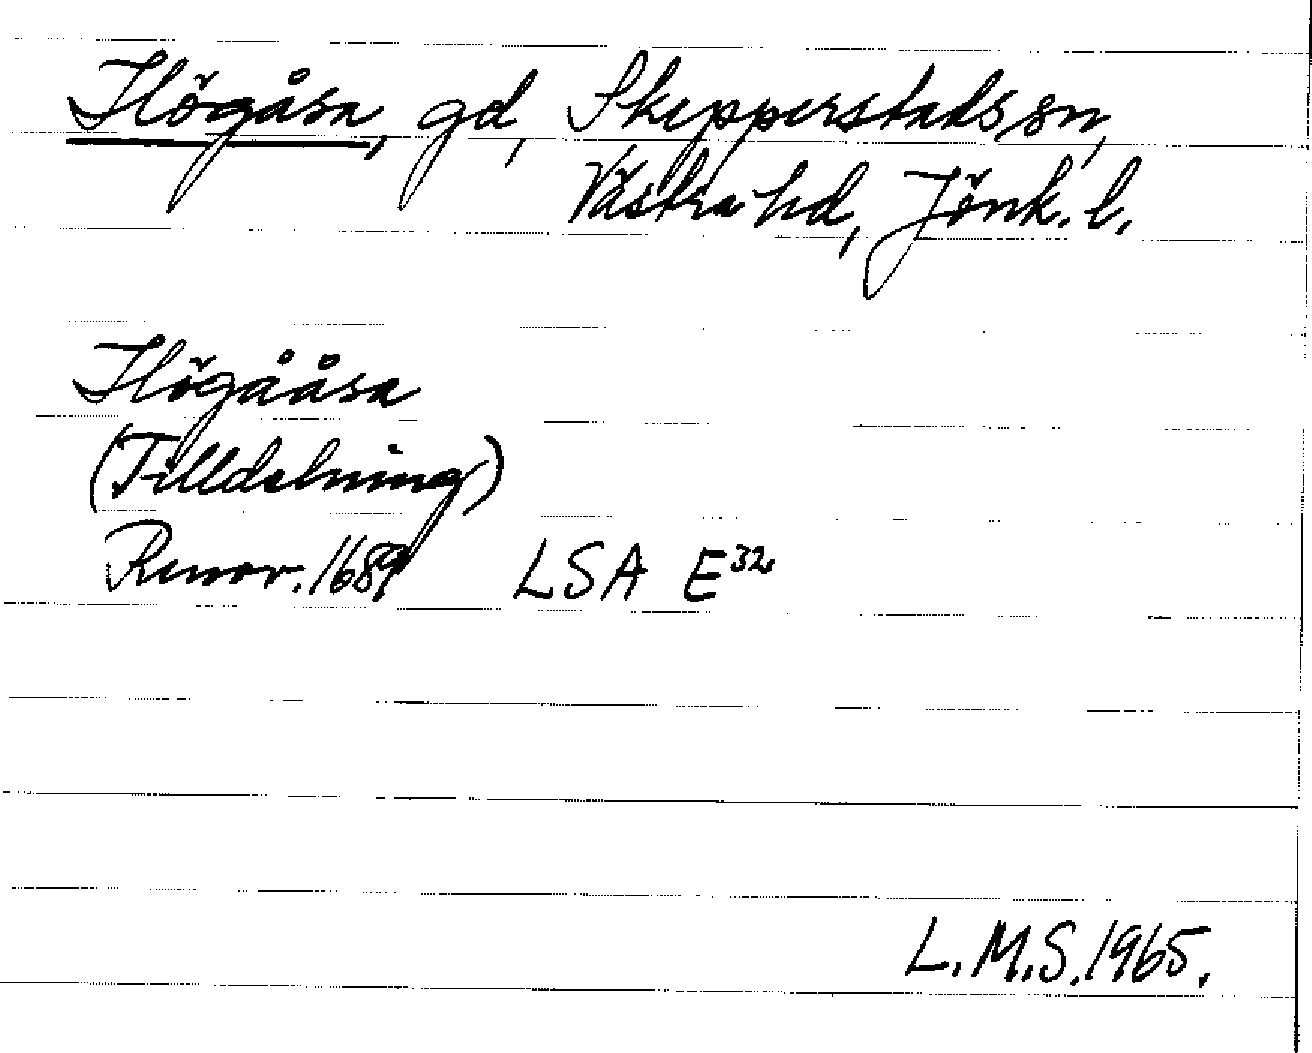 Högåsa, gd, Skepperstads sn,
Västra hd, Jönk. l.
Högååsa
(Tilldelning)
Renov. 1689 LSA E32
L.M.S. 1965.